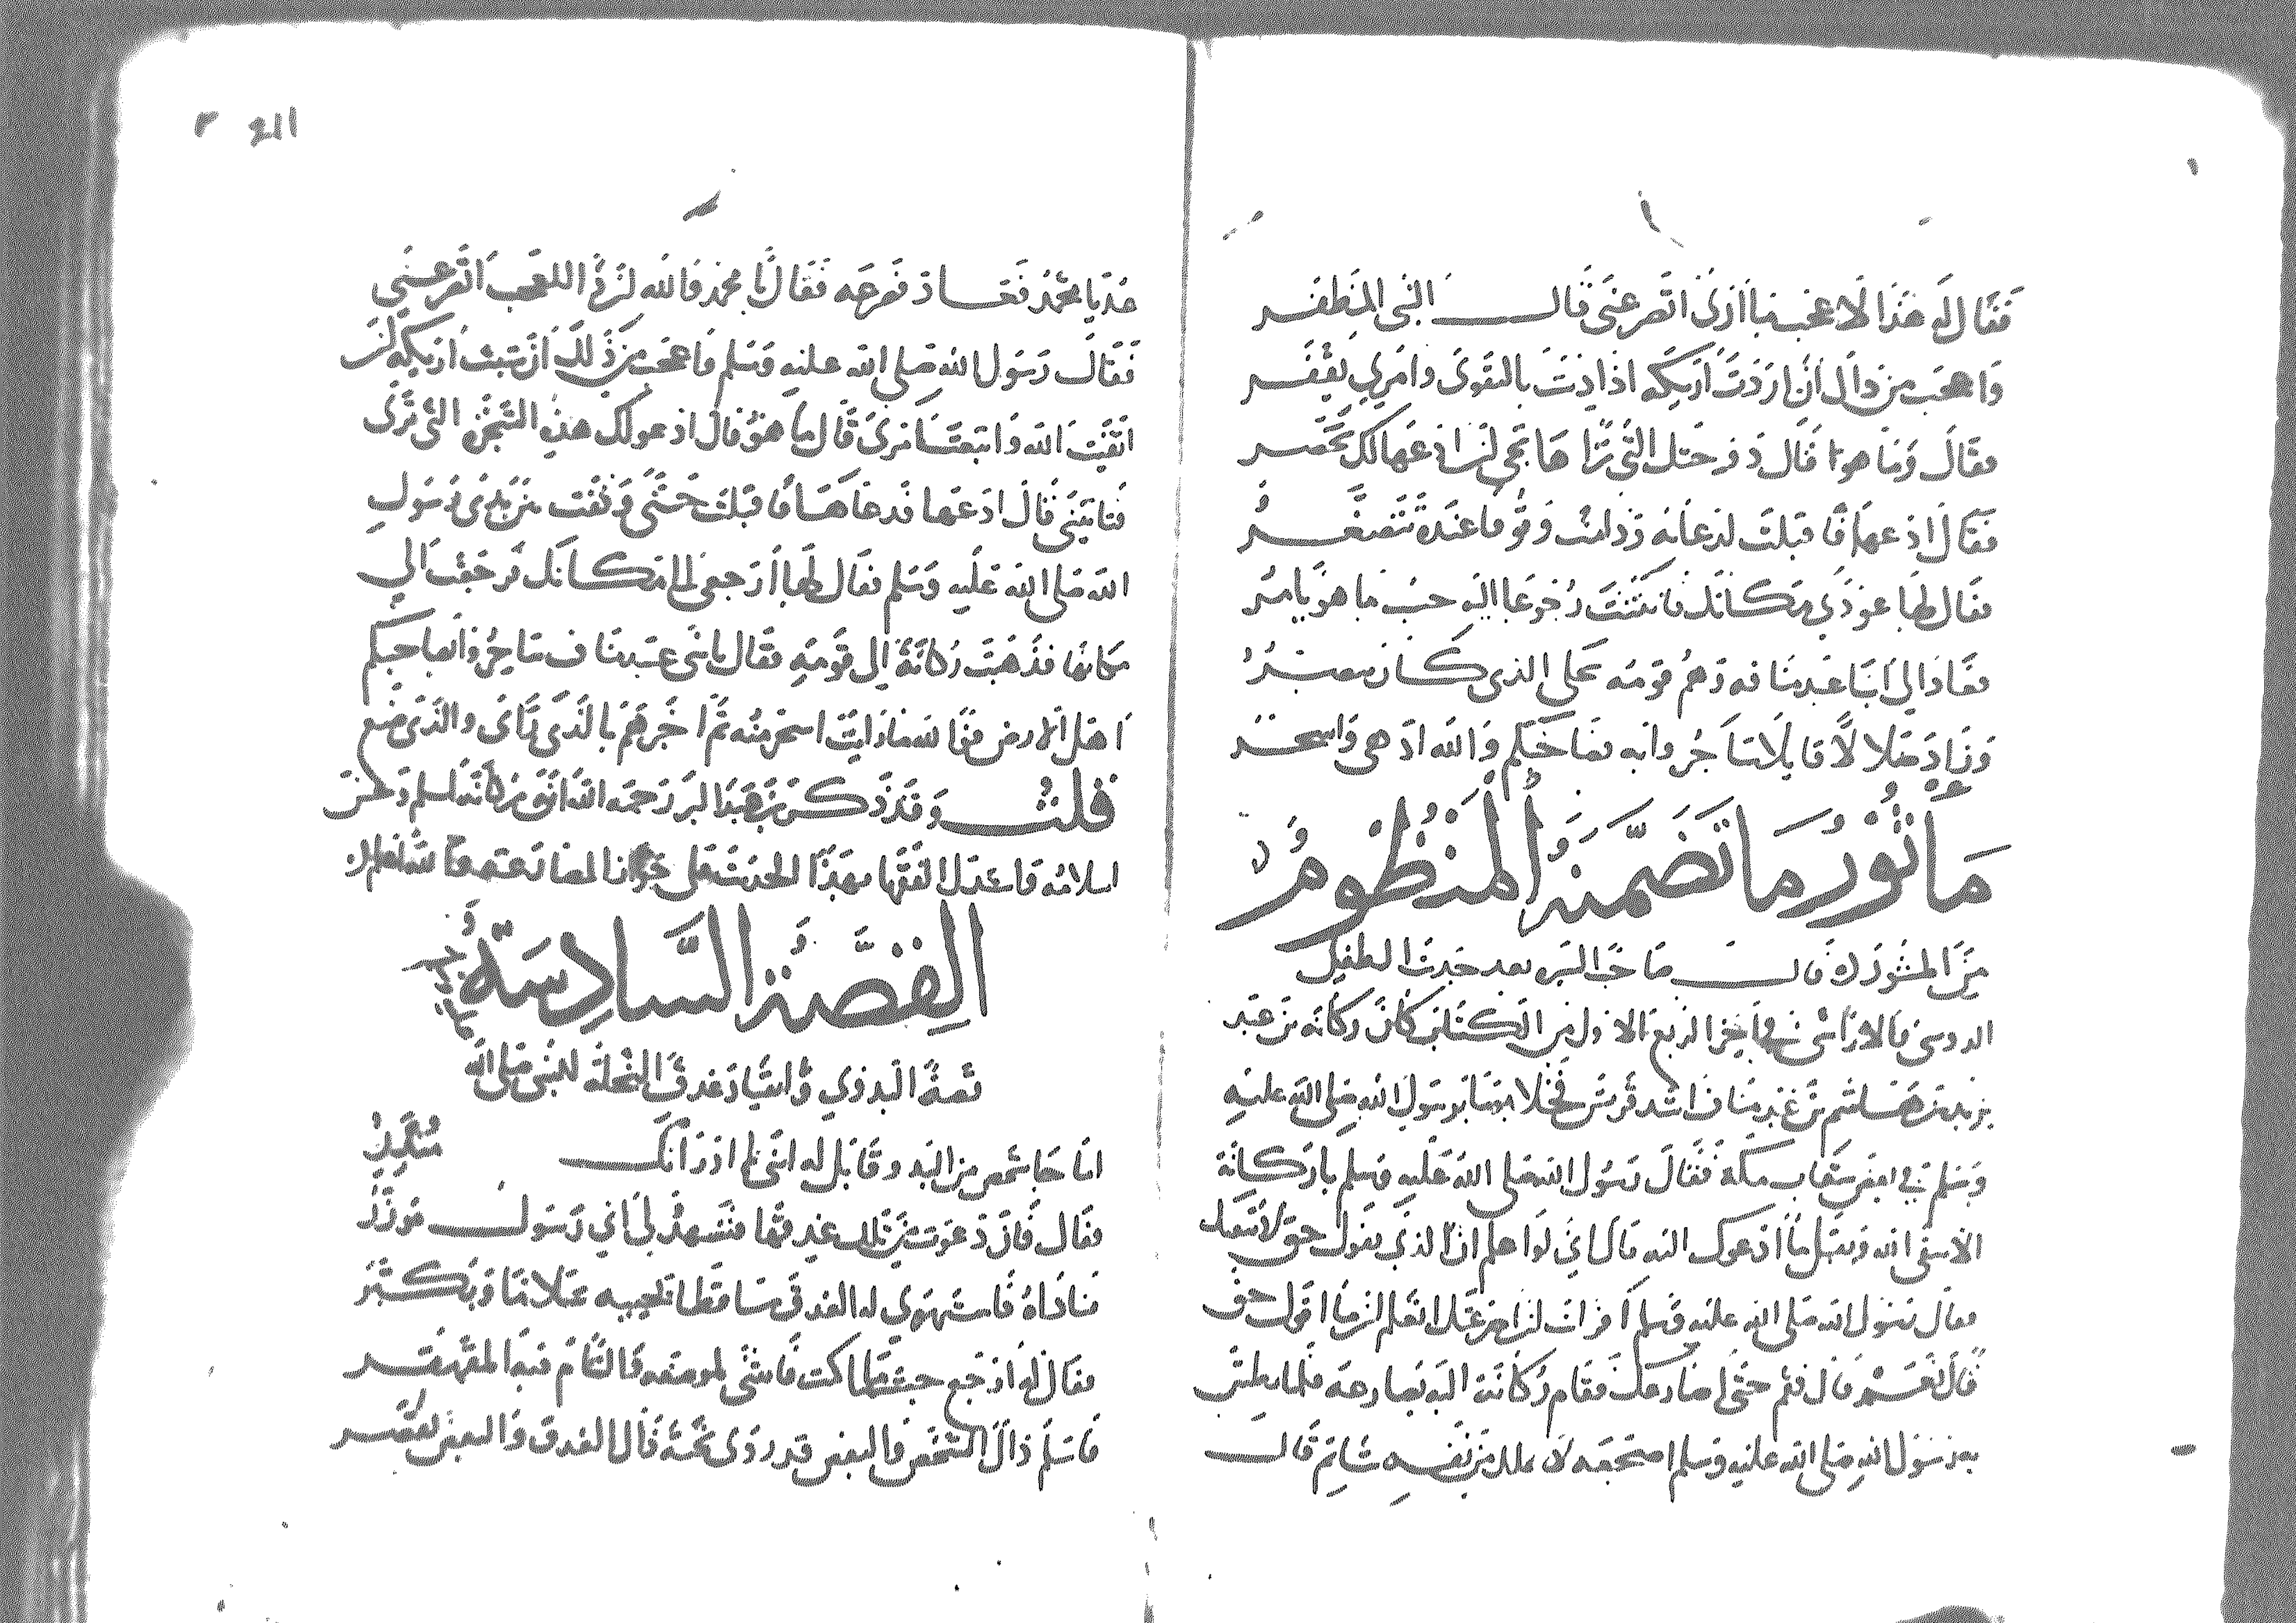 فَقَالَ لَه هَذَا لَا عجب يا أذى اتصرعنى قال النبى المظفر
وَاعجب من ذاك ان اردت اريكه اذا ادنت بالتقوى وامري يقفر
فقال وما هو قال ذوحتك التى تراها تجى لى ادعها لك تحضر
فقال ادعها فاقبلت لدعائه ودامت وقوفا عنده
فقال لها عودي مكانك فانثنت رجوعا اليه حيث ما هو يامر
فعاد الى ابنا عبد مناف وهم قومه على الذى كان يبصر
وزاد ضلالا قايلا ساجروا به بصاحبكم والله ادهى واسحر
مَأْثُورُ مَا تَضَمَّنَهُ الْمَنْظُومُ
من المنثور قال صاحب السير بعد حديث الطفيل
الدوسى والاراشى فى اخر الربع الاول من الكتاب كان ركانة بن عبد
يزيد بن هاشم بن عبد مناف اشد قريش فخلا يوما برسول الله صلى الله عليه
وسلم في بعض شعاب مكة فقال رسول الله صلى الله عليه وسلم يا ركانة
الا تتقى الله وتقبل ما ادعوك اليه قال اني لو اعلم ان الذي يقول حق لاتبعتك
فقال رسول الله صلى الله عليه وسلم افرايت ان صرعتك اتعلم ان ما اقول حق
قال نعم قال فقم حتى اصارعك فقام ركانة اليه يصارعه فلما بطش
به رسول الله صلى الله عليه وسلم اضجعه لا يملك من نفسه شيا ثم قال
عد يا محمد فعاد فصرعه فقال يا محمد والله ان ذا للعجب اتصرعني
فقال رسول الله صلى الله عليه وسلم واعجب من ذلك ان شيت اريكه ان
اتقيت الله واتبعت امرى قال ما هو قال ادعو لك هذه الشجرة التى ترى
فتاتيني قال ادعها فدعاها فاقبلت حتى وقفت بين يدى رسول
الله صلى الله عليه وسلم فقال لها ارجعى الى مكانك فرجعت الي
مكانها فذهب ركانة الى قومه فقال يا بنى عبد مناف ساحروا بصاحبكم
اهل الارض فوالله ما رايت اسحر منه ثم اخبرهم بالذى راى والذى صنع
قلت وقد ذكر بن عبد البر رحمه الله ان ركانة اسلم وحسن
اسلامه واستدل الفقها بهذا الحديث على جواز المصارعة
القِصَّةُ السَّادِسَة
قصة البدوي وانقياد عذق النخلة للنبى صلى الله
عليه وسلم
اما جا شخص من البدو وقايل له انني لم ادر انك منكر
فقال فان دعوت من تلك عذقها فتشهد لي اني رسول موزر
فناداه فاستهوي له العذق ساقطا
فقال له ارجع حيث ما كنت فانثنى لموضعه
فاسلم ذاك الشخص والبعض قد روى نخلة قال العذق والبعض